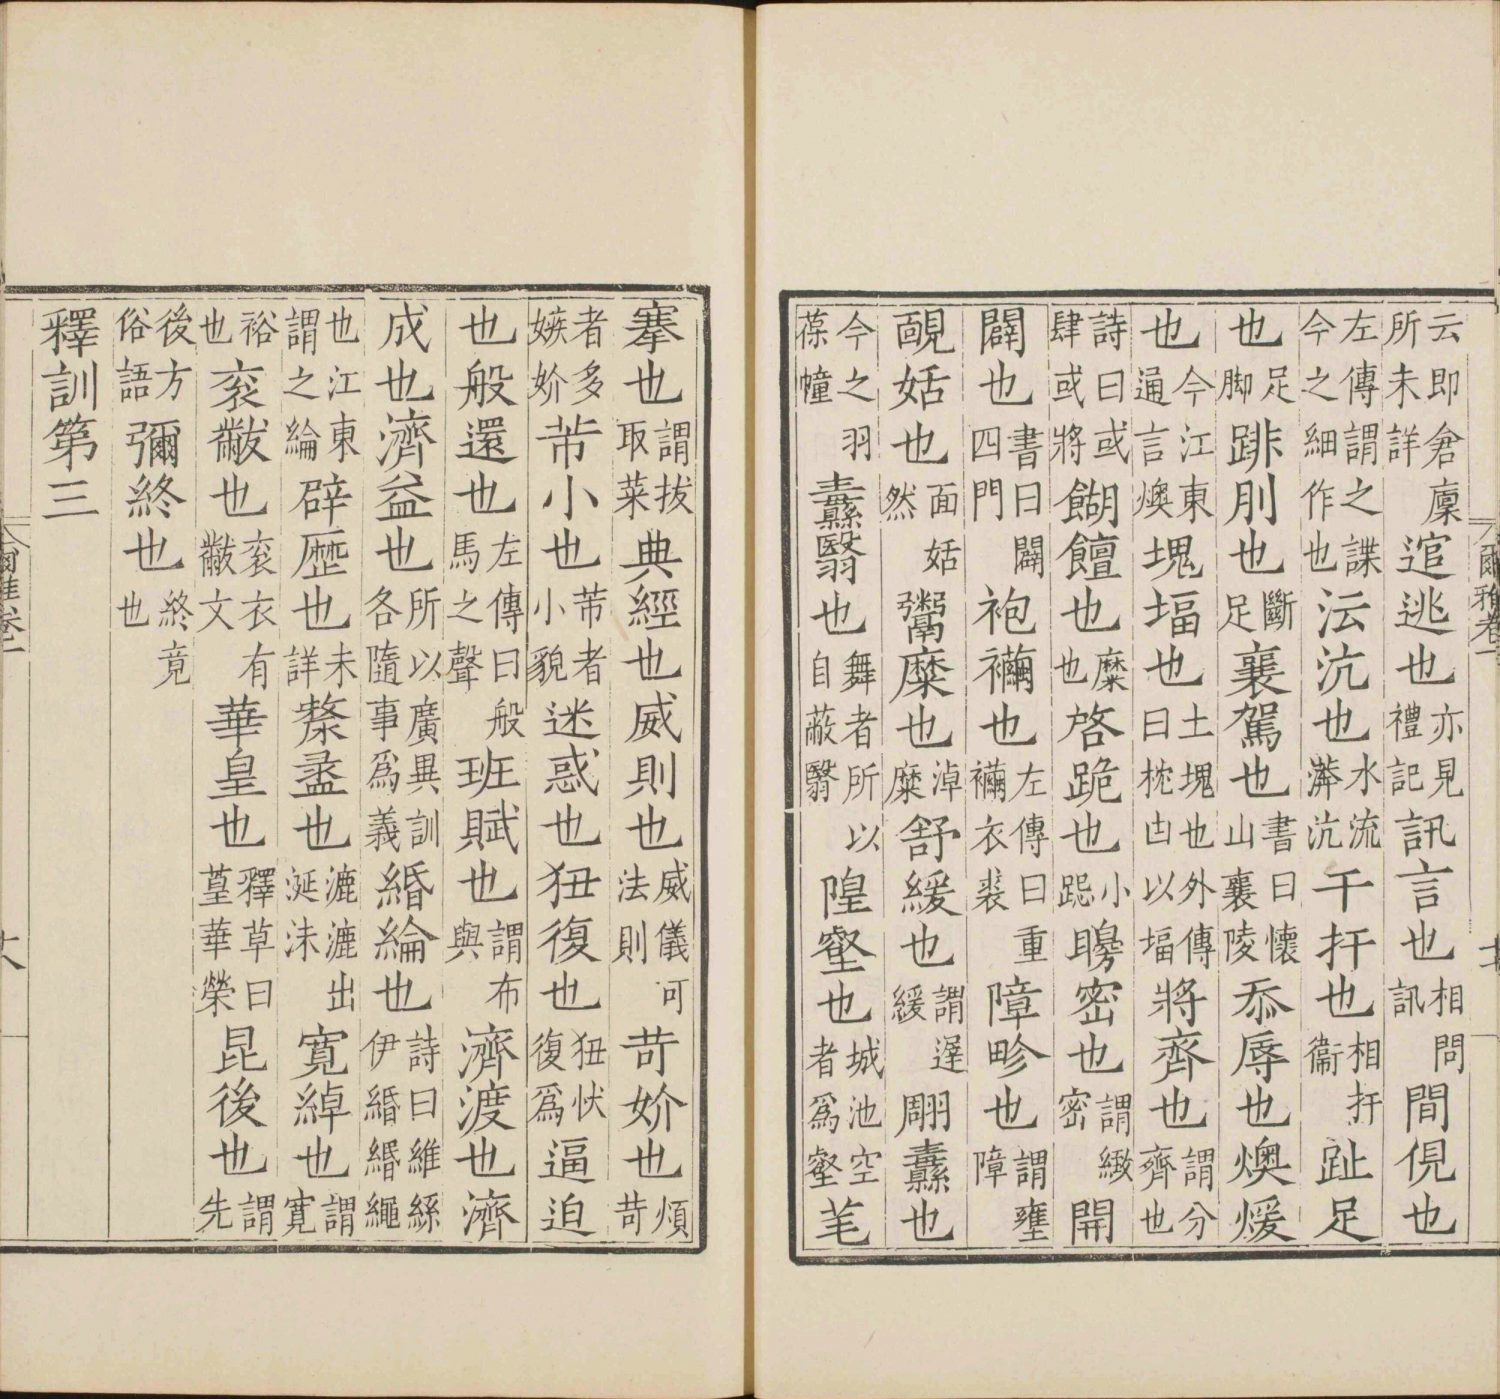 云即倉廩所未詳逭逃也亦見禮記訊言也相問訊間俔也
左傳謂之諜今之細作也沄沆也水流漭沆干扞也相扞衞趾足
也足脚跳刖也斷足襄駕也書曰懷山襄陵忝辱也燠煖
也今江東通言燠塊堛也土塊也外傳曰枕凷以堛將齊也謂分齊也
詩曰或肆或將餬饘也糜也啓跪也小跽䁵密也謂緻密開
闢也書曰闢四門袍襺也左傳曰重襺衣裘障畛也謂壅障
靦姡也面姡然鬻糜也淖糜舒緩也謂遲緩翢纛也
今之羽葆幢纛翳也舞者所以自蔽翳隍壑也城池空者爲壑芼
爾雅卷一
搴也謂拔取菜典經也威則也威儀可法則苛妎也煩苛
者多嫉妎芾小也芾者小貌迷惑也狃復也狃忕復爲逼迫
也般還也左傳曰般馬之聲班賦也謂布與濟渡也濟
成也濟益也所以廣異訓各隨事爲義緡綸也詩曰維絲伊緡緡繩
也江東謂之綸辟歷也未詳漦盝也漉漉出涎沫寬綽也謂寬
裕也衮黻也衮衣有黻文華皇也釋草曰葟華榮昆後也謂先
後方俗語彌終也終竟也
釋訓第三
爾雅卷一